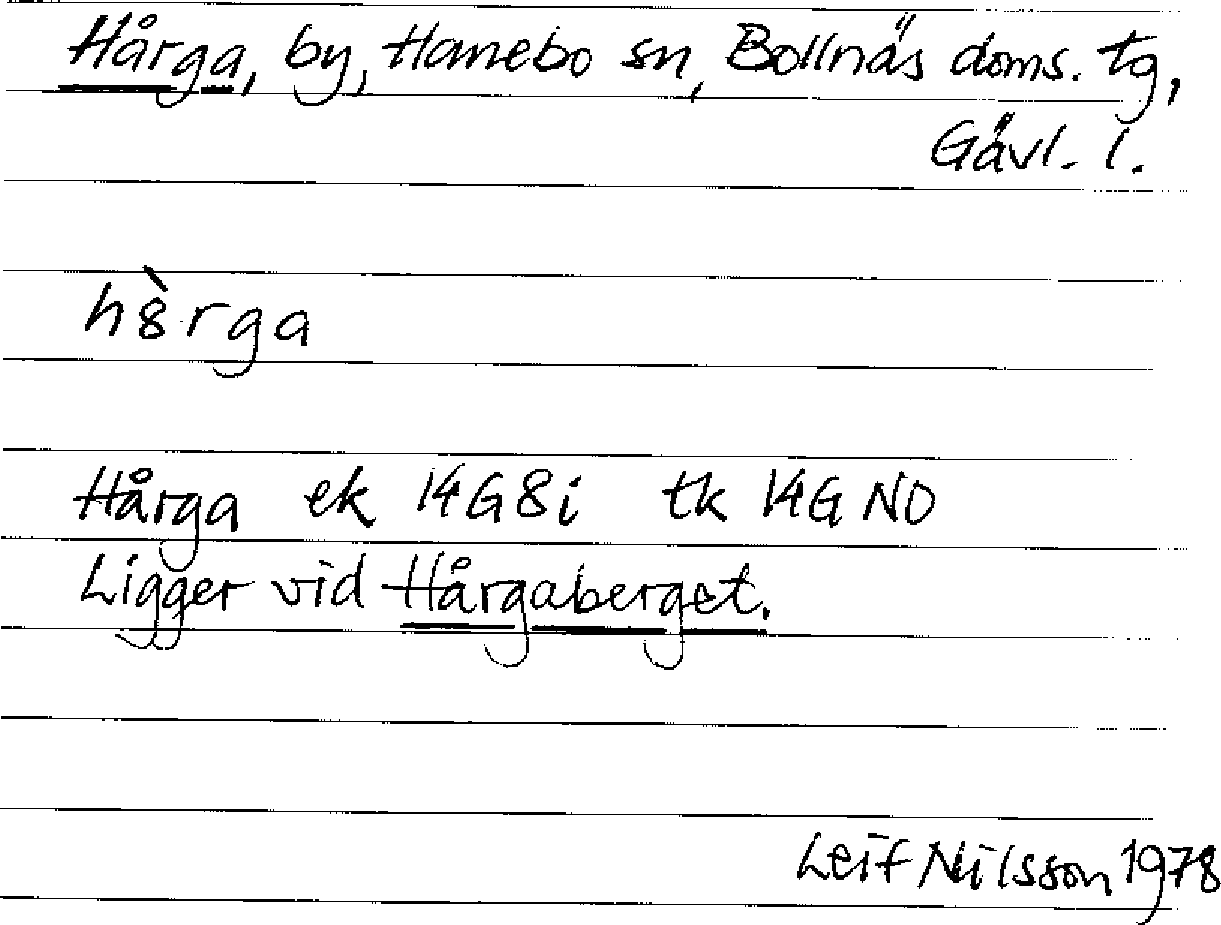 Hårga, by, Hanebo sn, Bollnäs doms. tg,
Gävl. l.
h8̀rga
Hårga ek 14G8i tk 14G NO
Ligger vid Hårgaberget.
Leif Nilsson 1978